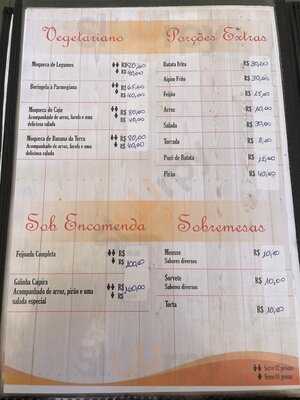 Vegetariano
Moqueca de Legumes R$
R$ 40,00
Beringela à Parmegiana R$
R$ 40,00
Moqueca de Caju R$ 80,00
Acompanhado de arroz, farofa e uma R$ 40,00
deliciosa salada
Moqueca de Banana da Terra R$ 80,00
Acompanhado de arroz, farofa e uma R$ 40,00
deliciosa salada
Porções Extras
Batata Frita R$ 30,00
Aipim Frito R$ 30,00
Feijão R$ 15,00
Arroz R$ 10,00
Salada R$ 30,00
Torrada R$ 8,00
Purê de Batata R$ 15,00
Pirão R$ 40,00
Sob Encomenda
Feijoada Completa R$
R$ 100,00
Galinha Caipira R$ 140,00
Acompanhado de arroz, pirão e uma R$
salada especial
Sobremesas
Mousse R$ 10,00
Sabores diversos
Sorvete R$ 10,00
Sabores diversos
Torta R$ 10,00
Serve 02 pessoas
Serve 01 pessoa